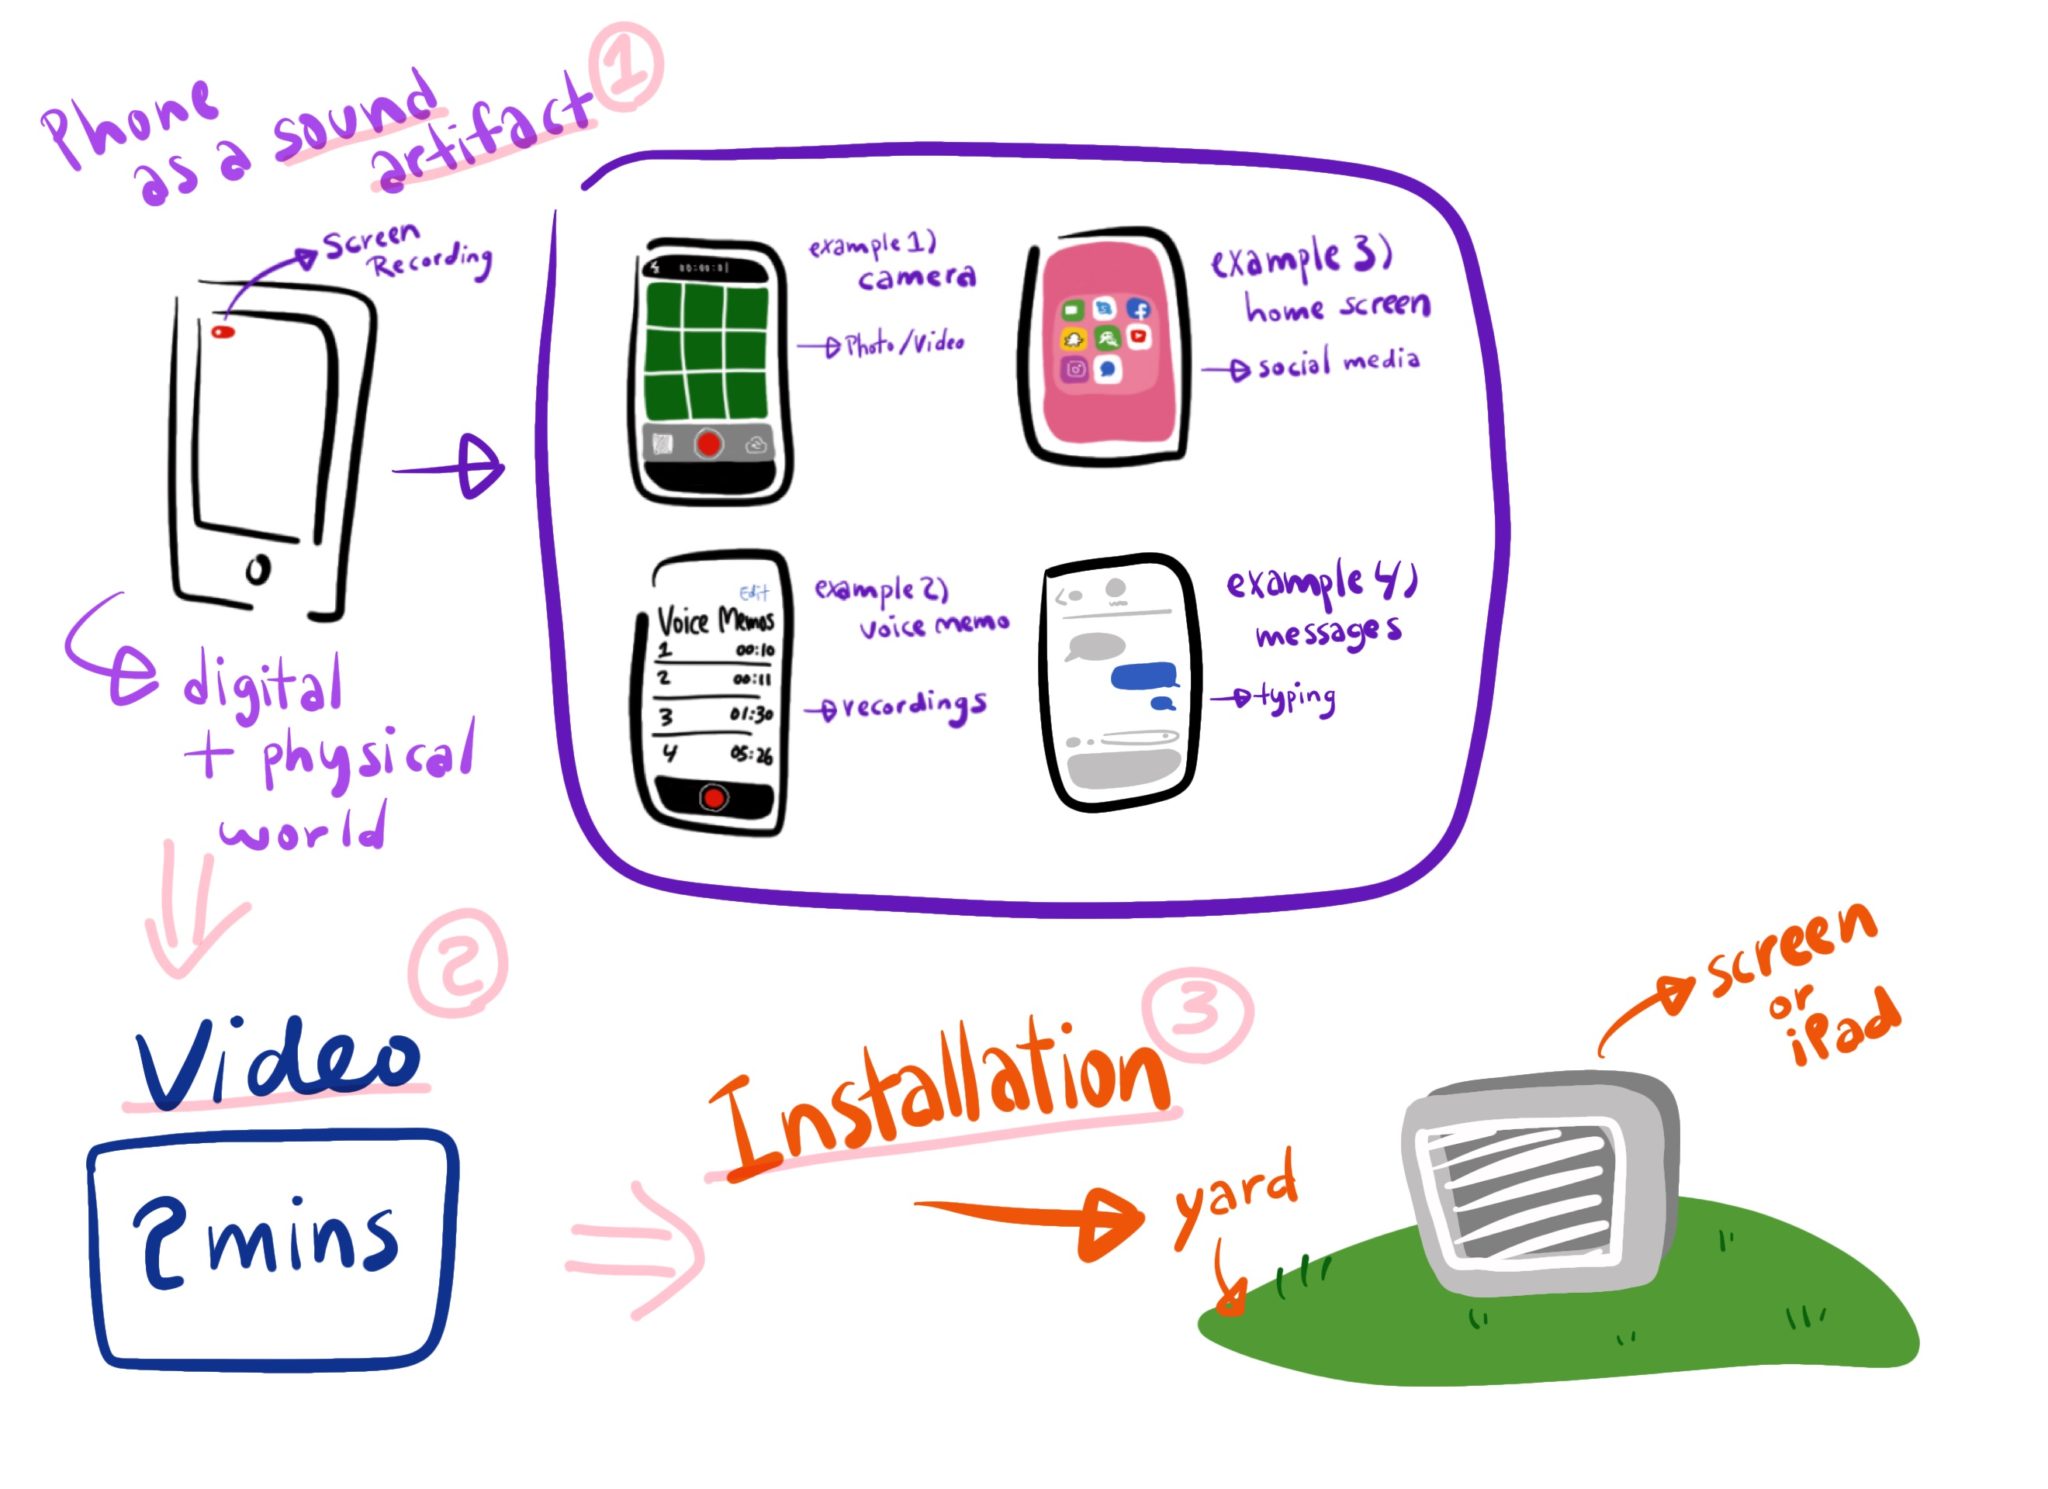 Phone
as a sound
artifact
1
Screen
Recording
digital
+ physical
world
00:00:01
example 1)
camera
Photo/Video
example 3)
home screen
social media
Edit
Voice Memos
1 00:10
2 00:11
3 01:30
4 05:26
example 2)
voice memo
recordings
example 4)
messages
typing
2
Video
2 mins
3
Installation
yard
screen
or
iPad